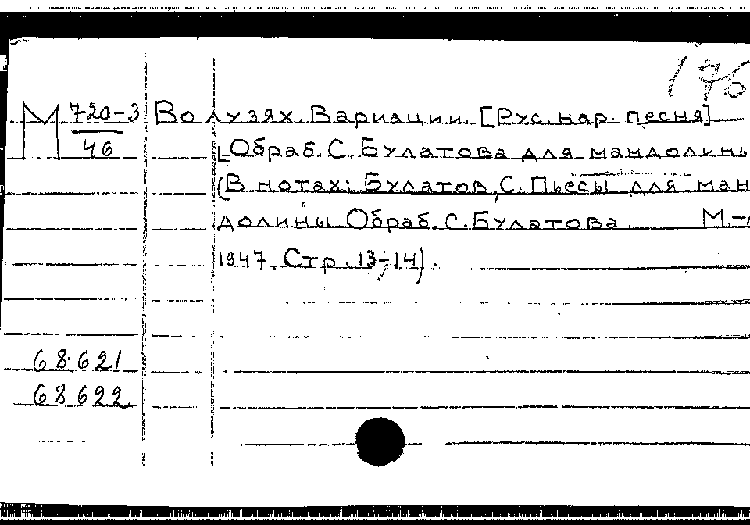 176
М 720-3 Во лузях. Вариации. [Рус. нар. песня]
46 [Обраб. С. Булатова для мандолины
(В нотах: Булатов, С. Пьесы для ман
долины. Обраб. С. Булатова М.-
1947. Стр. 13-14).
68.621
68622